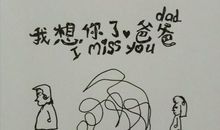 我想你了♥爸爸 dad
I miss you